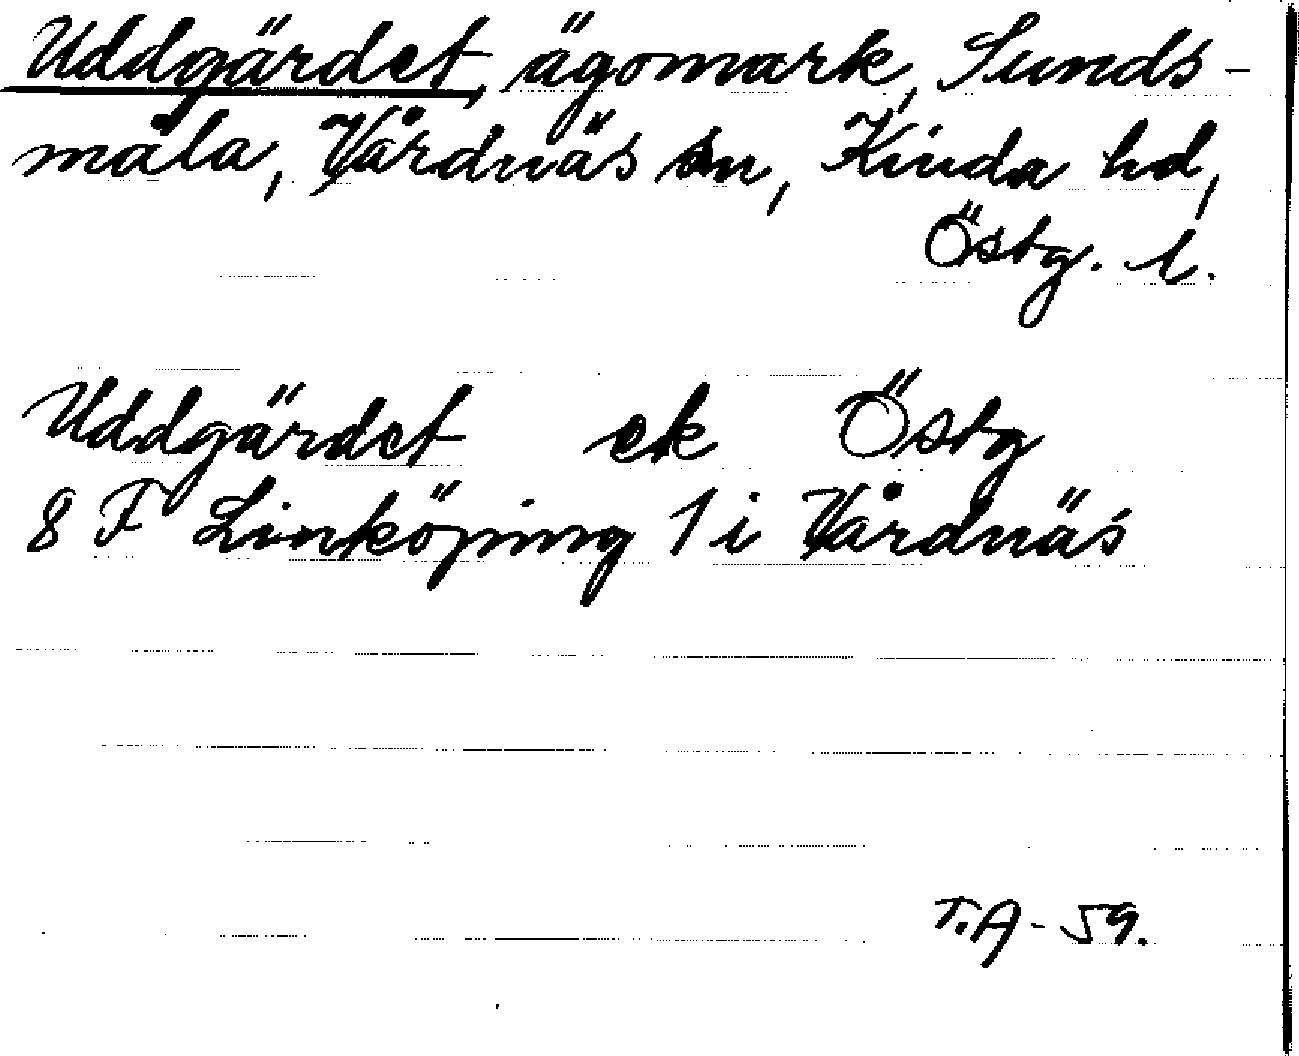 Uddgärdet, ägomark, Sunds-
måla, Vårdnäs sn, Kinda hd,
Östg. l.
Uddgärdet ek Östg
8 F Linköping 1 i Vårdnäs
T.A - 59.